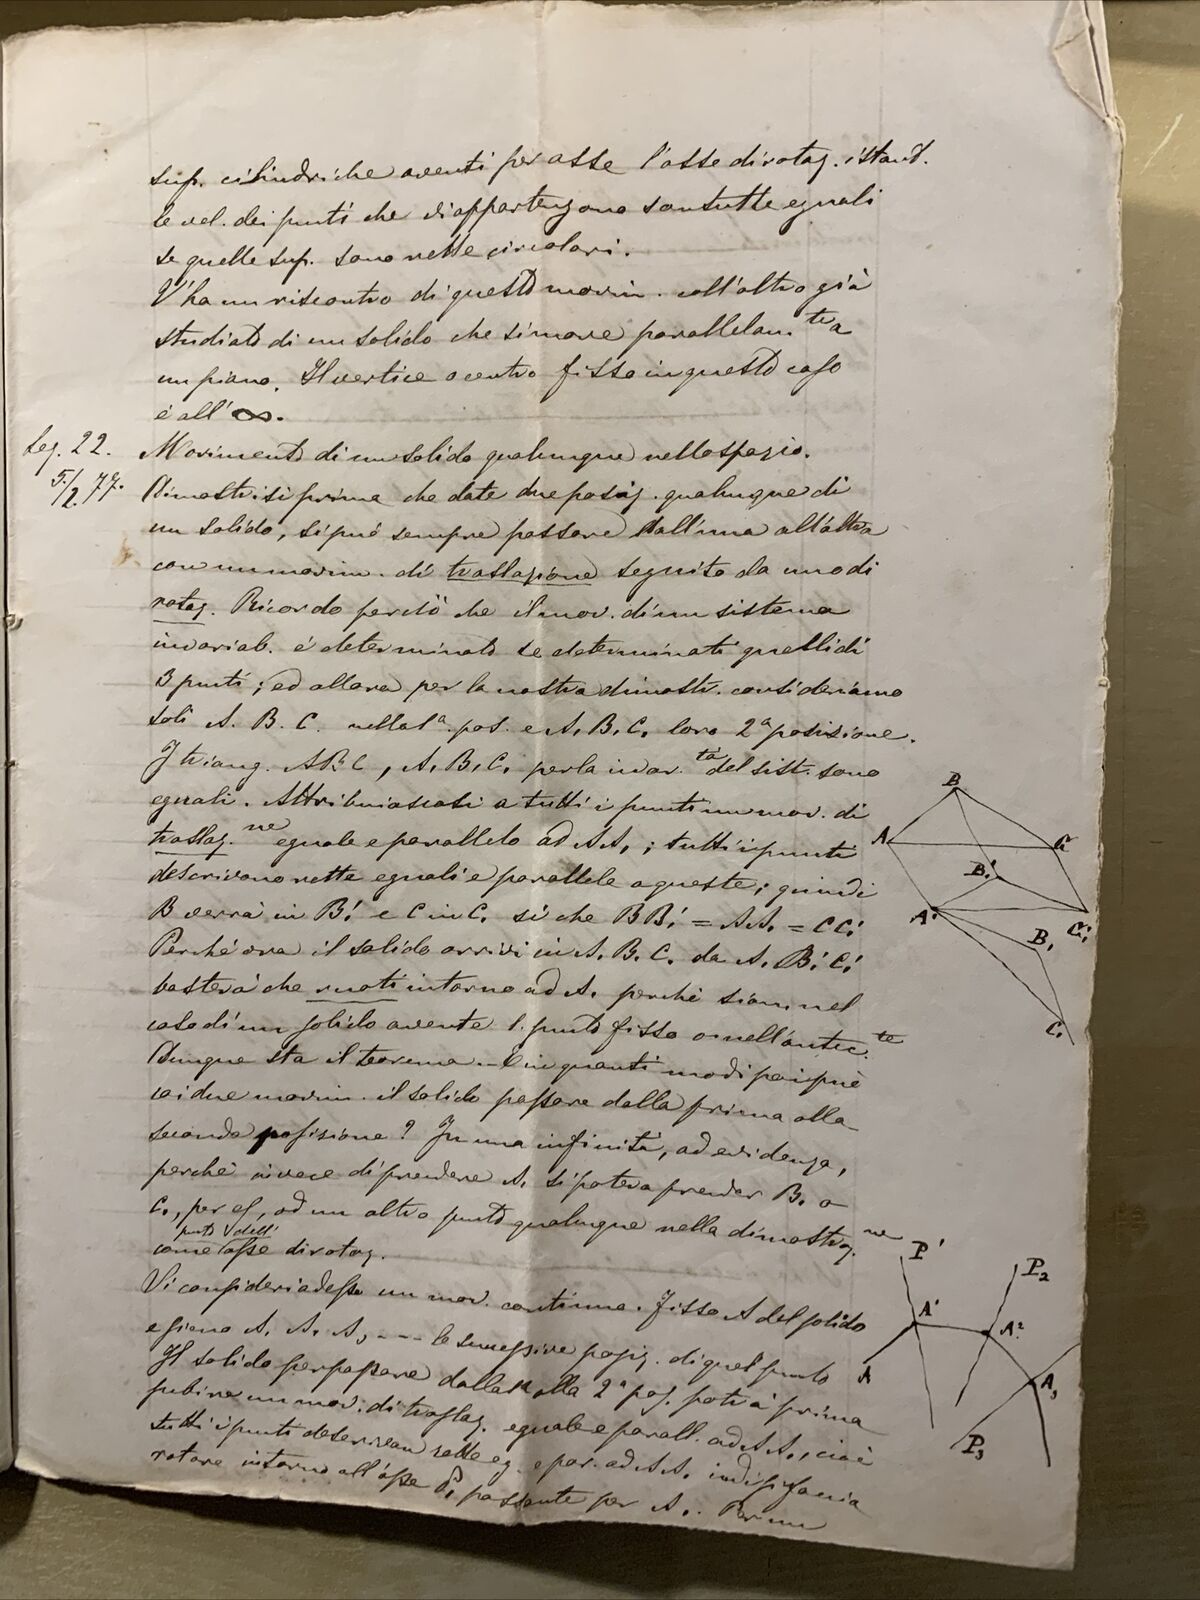 sup. cilindriche aventi per asse l'asse di rotaz. istant.
le vel. dei punti che vi appartengono son tutte eguali
se quelle sup. sono rette circolari.
V'ha un riscontro di questo movim. coll'altro già
studiato di un solido che si move parallelam.te a
un piano. Il vertice o centro fisso in questo caso
è all'∞.
Lez. 22.
5/2.77.
Movimento di un solido qualunque nello spazio.
Dimostrisi prima che date due posiz. qualunque di
un solido, si può sempre passare dall'una all'altra
con un movim. di traslazione seguito da uno di
rotaz. Ricordo perciò che il mov. di un sistema
invariab. è determinato se determinati quelli di
3 punti; ed allora per la nostra dimostr. consideriamo
soli A. B. C. nella 1a. pos. e A, B, C, loro 2a posizione.
I triang. ABC, A, B, C, per la invar.tà del sist. sono
eguali. Attribuiscasi a tutti i punti un mov. di
traslaz.ne eguale e parallelo ad AA,; tutti i punti
descrivono rette eguali e parallele a queste; quindi
B verrà in B,' e C in C,' sì che BB,' = AA, = CC,'
Perchè ora il solido arrivi in A, B, C, da A, B,' C,'
basterà che ruoti intorno ad A, perchè siam nel
caso di un solido avente 1. punto fisso o nell'antec.te
Dunque sta il teorema. E in quanti modi poi può
coi due movim. il solido passare dalla prima alla
seconda posizione? In una infinità, ad evidenza,
perchè invece di prendere A, si poteva prender B, o
C,, per es, od un altro punto qualunque nella dimostraz.ne
punto dell'
come asse di rotaz.
Si consideri adesso un mov. continuo. Fisso A del solido
e siano A, A, A, --- le successive posiz. di quel punto
Il solido per passare dalla 1a alla 2a pos. potrà prima
subire un mov. di traslaz. eguale e parall. ad AA,, cioè
tutti i punti descrivean rette eg. e par. ad AA, indi
rotare intorno all'asse P, passante per A,. Per un
B
A
C
B,'
A'
C,'
B,
C,
P'
P2
A'
A2
A
A3
P3